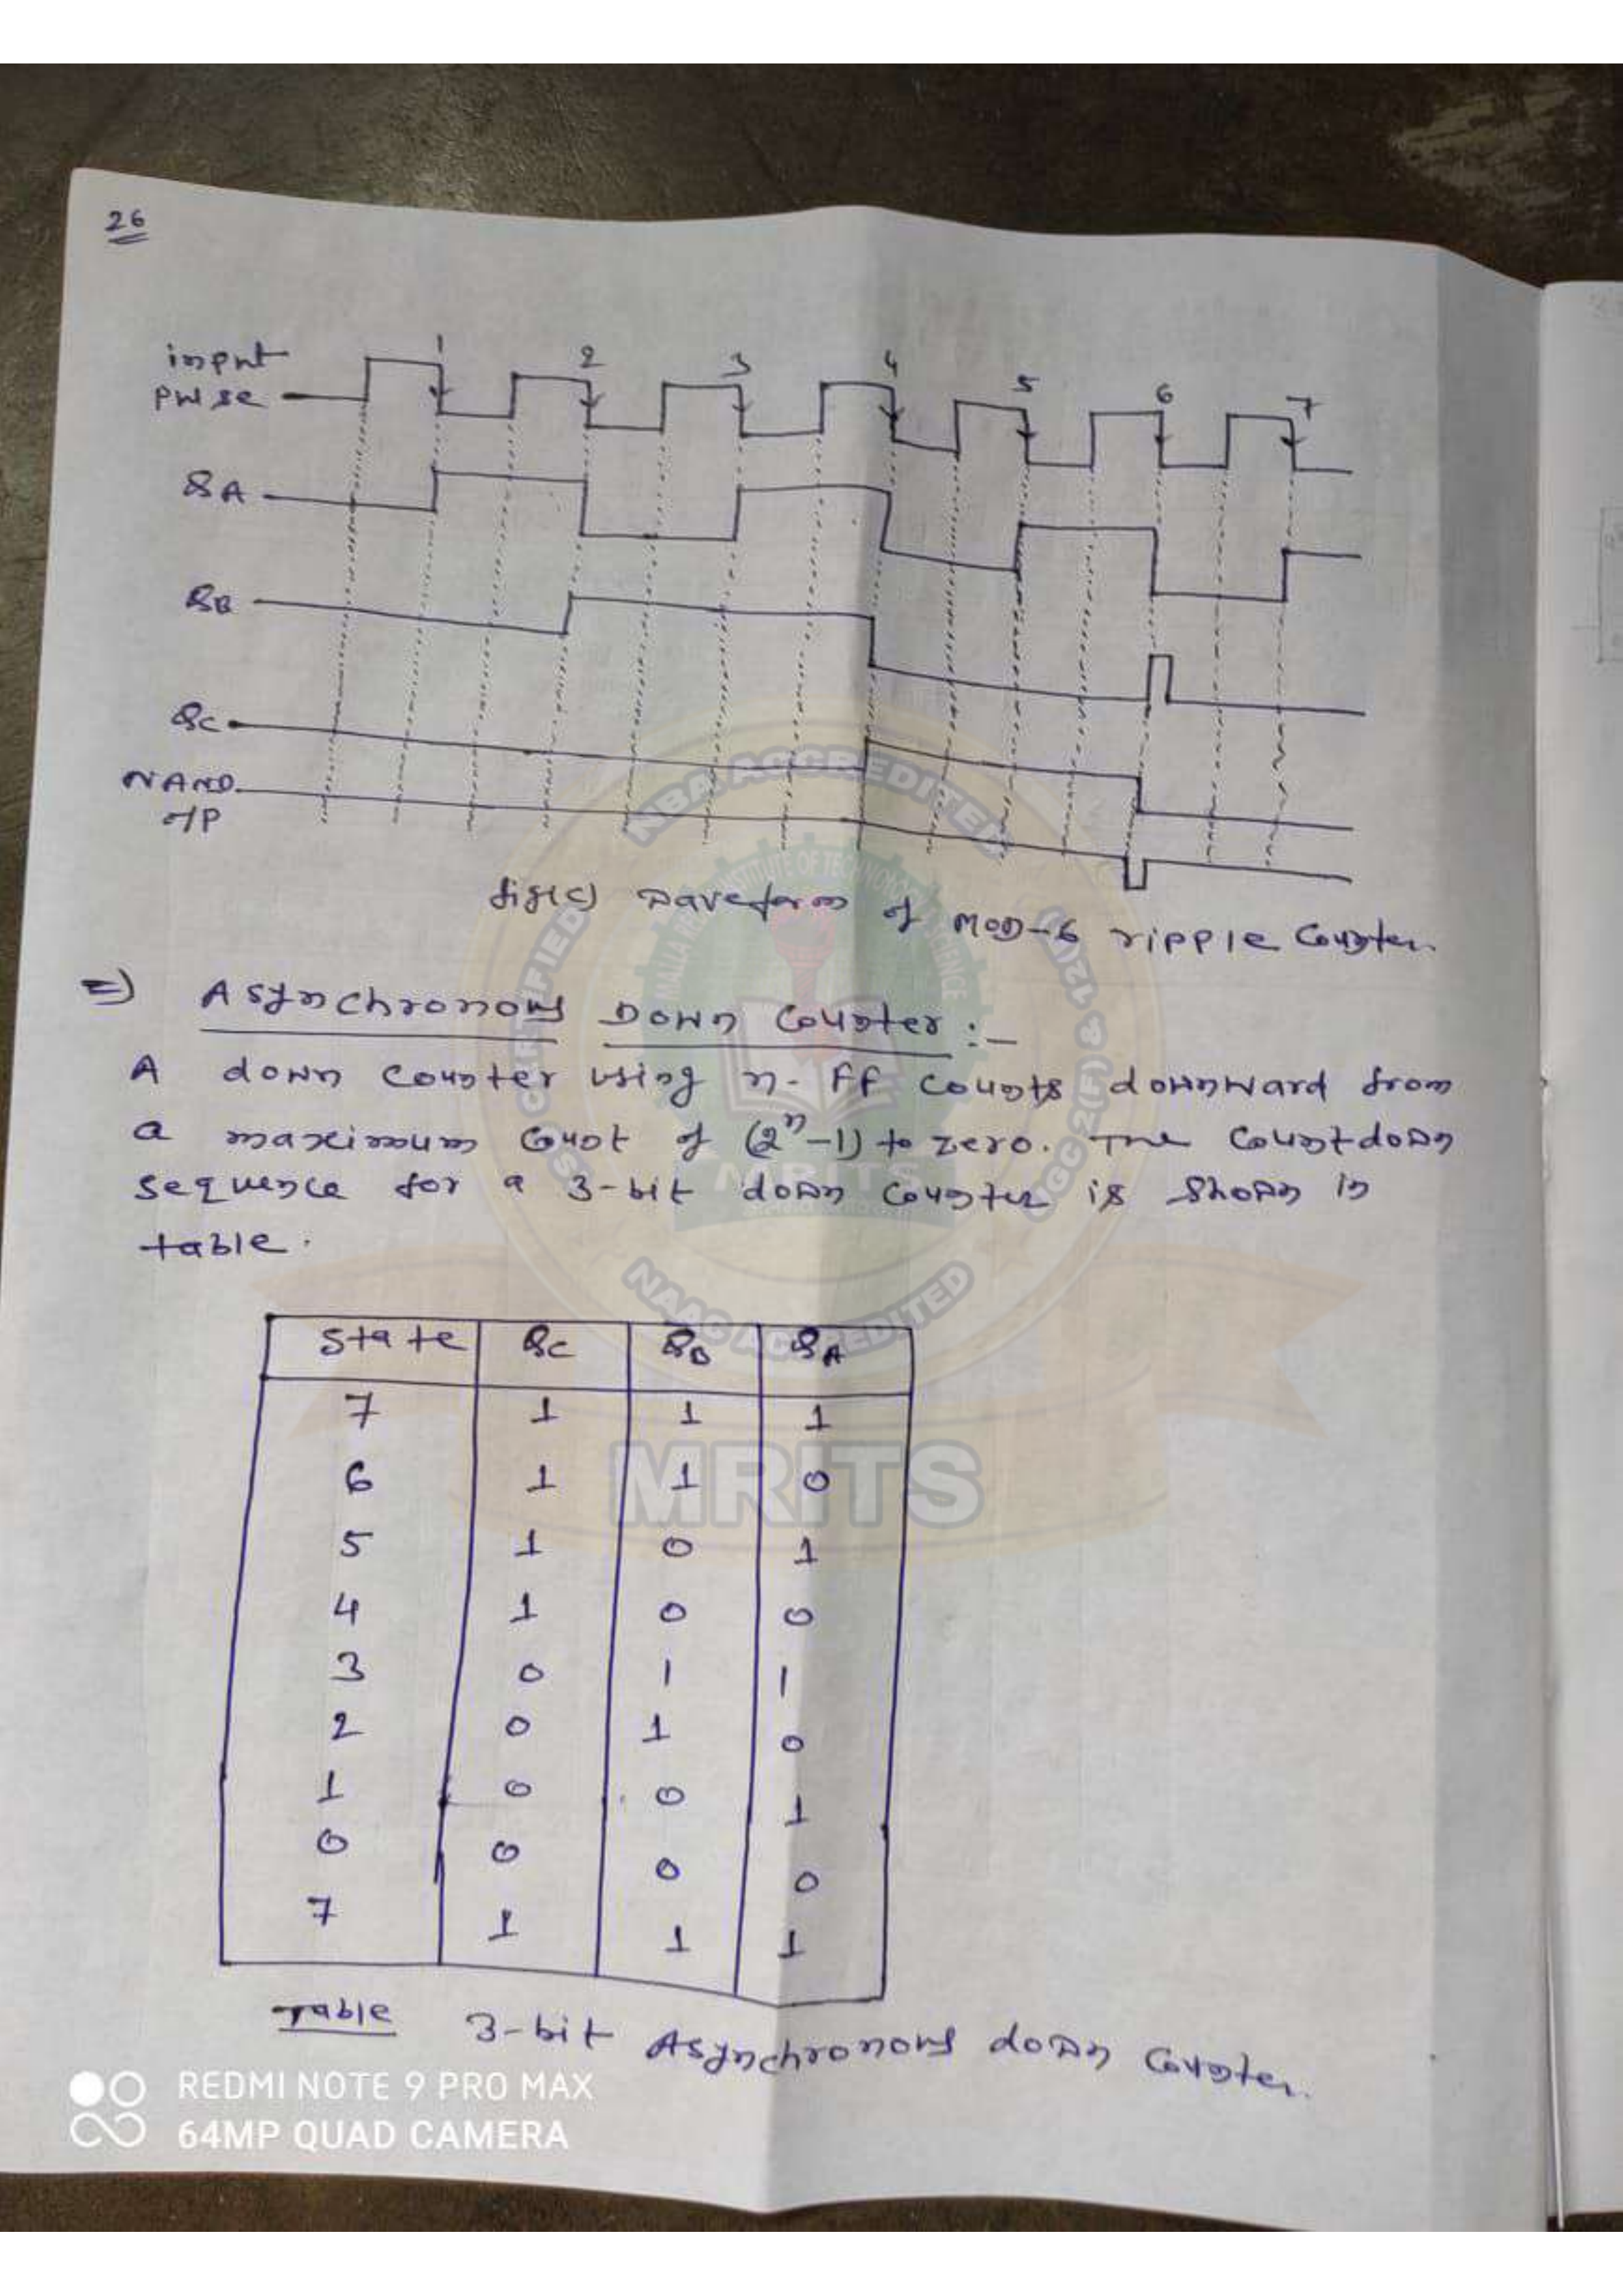 26
input
pulse
1 2 3 4 5 6 7
QA
QB
QC
NAND
o/p
fig(c) waveform of MOD-6 ripple Counter.
=) Asynchronous Down Counter :-
A down counter using n-FF counts downward from
a maximum count of (2ⁿ-1) to zero. The Countdown
sequence for a 3-bit down counter is shown in
table.
State QC QB QA
7 1 1 1
6 1 1 0
5 1 0 1
4 1 0 0
3 0 1 1
2 0 1 0
1 0 0 1
0 0 0 0
7 1 1 1
Table 3-bit Asynchronous down Counter.
NBA ACCREDITED
NAAC ACCREDITED
MRITS
MRITS
UGC 2(F) & 12(B)
REDMI NOTE 9 PRO MAX
64MP QUAD CAMERA